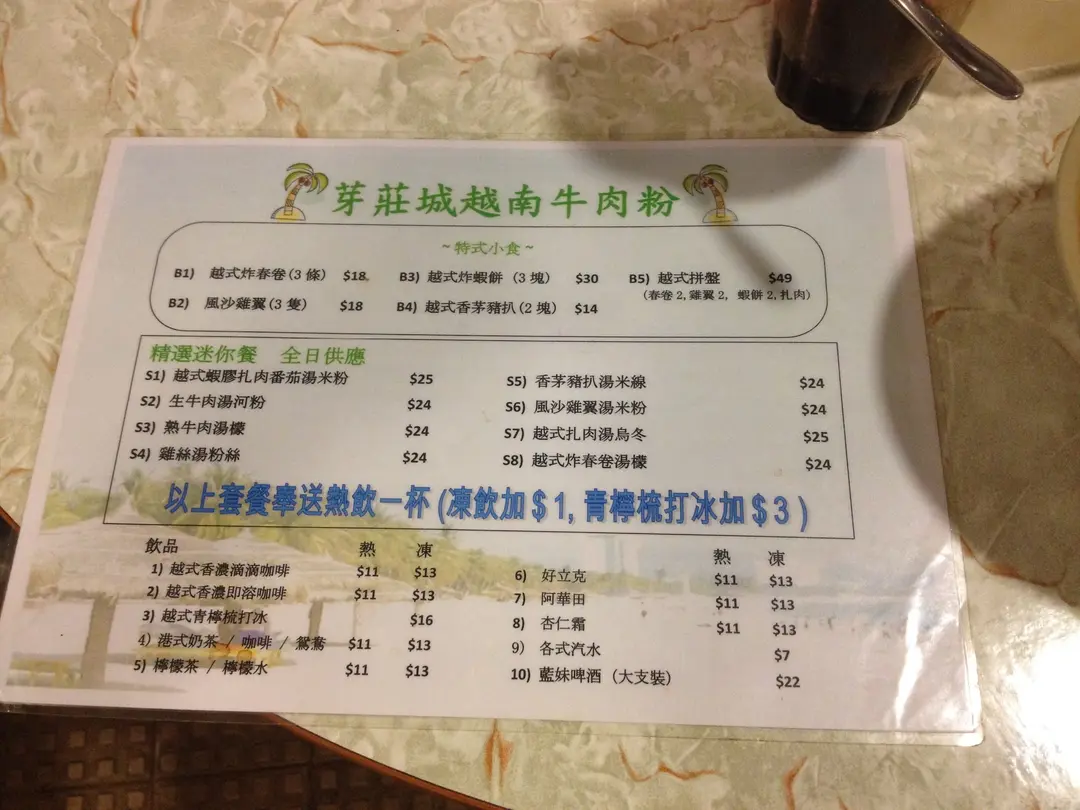 芽莊城越南牛肉粉
~特式小食~
B1) 越式炸春卷(3 條) $18 B3) 越式炸蝦餅 (3 塊) $30 B5) 越式拼盤 $49
(春卷 2, 雞翼 2, 蝦餅 2, 扎肉)
B2) 風沙雞翼(3 隻) $18 B4) 越式香茅豬扒(2 塊) $14
精選迷你餐 全日供應
S1) 越式蝦膠扎肉番茄湯米粉 $25 S5) 香茅豬扒湯米線 $24
S2) 生牛肉湯河粉 $24 S6) 風沙雞翼湯米粉 $24
S3) 熟牛肉湯檬 $24 S7) 越式扎肉湯烏冬 $25
S4) 雞絲湯粉絲 $24 S8) 越式炸春卷湯檬 $24
以上套餐奉送熱飲一杯 (凍飲加$1, 青檸梳打冰加$3)
飲品 熱 凍 熱 凍
1) 越式香濃滴滴咖啡 $11 $13 6) 好立克 $11 $13
2) 越式香濃即溶咖啡 $11 $13 7) 阿華田 $11 $13
3) 越式青檸梳打冰 $16 8) 杏仁霜 $11 $13
4) 港式奶茶 / 咖啡 / 鴛鴦 $11 $13 9) 各式汽水 $7
5) 檸檬茶 / 檸檬水 $11 $13 10) 藍妹啤酒 (大支裝) $22